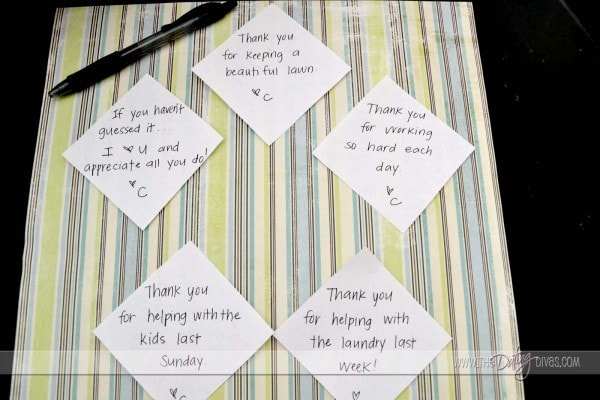 Thank you
for keeping a
beautiful lawn.
♥ C
If you haven't
guessed it...
I ♥ U and
appreciate all you do!
♥ C
Thank you
for working
so hard each
day.
♥ C
Thank you
for helping with the
kids last
Sunday.
♥ C
Thank you
for helping with
the laundry last
week!
♥
WWW.THEDatingDIVAS.COM